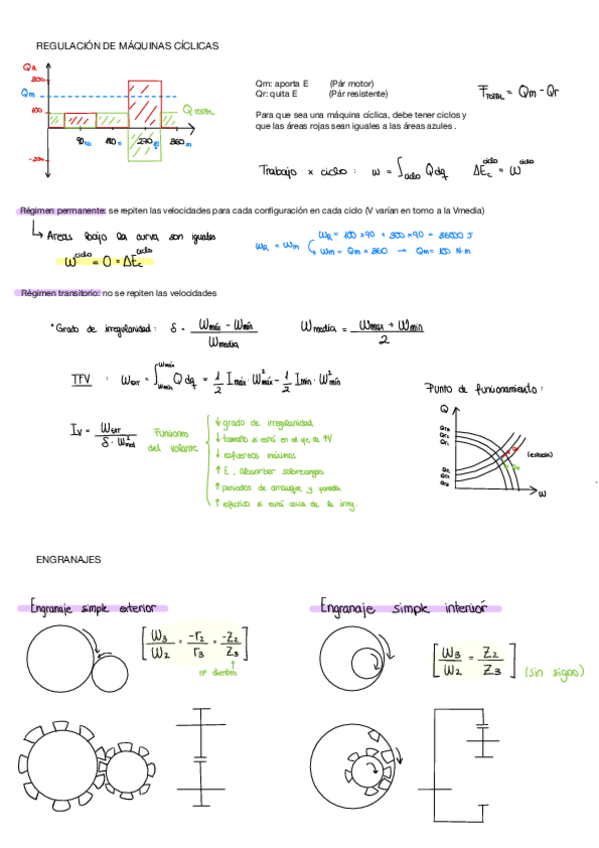 REGULACIÓN DE MÁQUINAS CÍCLICAS
QR
300
Qm
100
Q TOTAL
90 180 270 360
-200
Qm: aporta E (Pár motor)
Qr: quita E (Pár resistente)
FTOTAL = Qm - Qr
Para que sea una máquina cíclica, debe tener ciclos y
que las áreas rojas sean iguales a las áreas azules .
Trabajo x ciclo : W = ∫ciclo Q dφ ΔEc ciclo = W ciclo
Régimen permanente: se repiten las velocidades para cada configuración en cada ciclo (V varían en torno a la Vmedia)
Areas bajo la curva son iguales
W ciclo = 0 = ΔEc ciclo
WR = Wm
WR = 100 x 90 + 300 x 90 = 36000 J
Wm = Qm x 360 → Qm = 100 N·m
Régimen transitorio: no se repiten las velocidades
• Grado de irregularidad : δ = (Wmáx - Wmín) / Wmedia
Wmedia = (Wmax + Wmin) / 2
TFV : WEXT = ∫ Wmín Wmáx Q dφ = 1/2 Imáx · W²máx - 1/2 Imin · W²mín
Punto de funcionamiento :
IV = WEXT / (δ · W²med)
Funciones
del volante
↓ grado de irregularidad
↓ tamaño si está en el eje de ↑V
↓ esfuerzos máximos
↑ E, absorber sobrecargas
↑ periodos de arranque y parada
↑ efectivo si está cerca de la irreg.
Q
(estación)
W
ENGRANAJES
Engranaje simple exterior
[W3 / W2 = -r2 / r3 = -Z2 / Z3]
nº dientes
Engranaje simple interior
[W3 / W2 = Z2 / Z3] (sin signo)